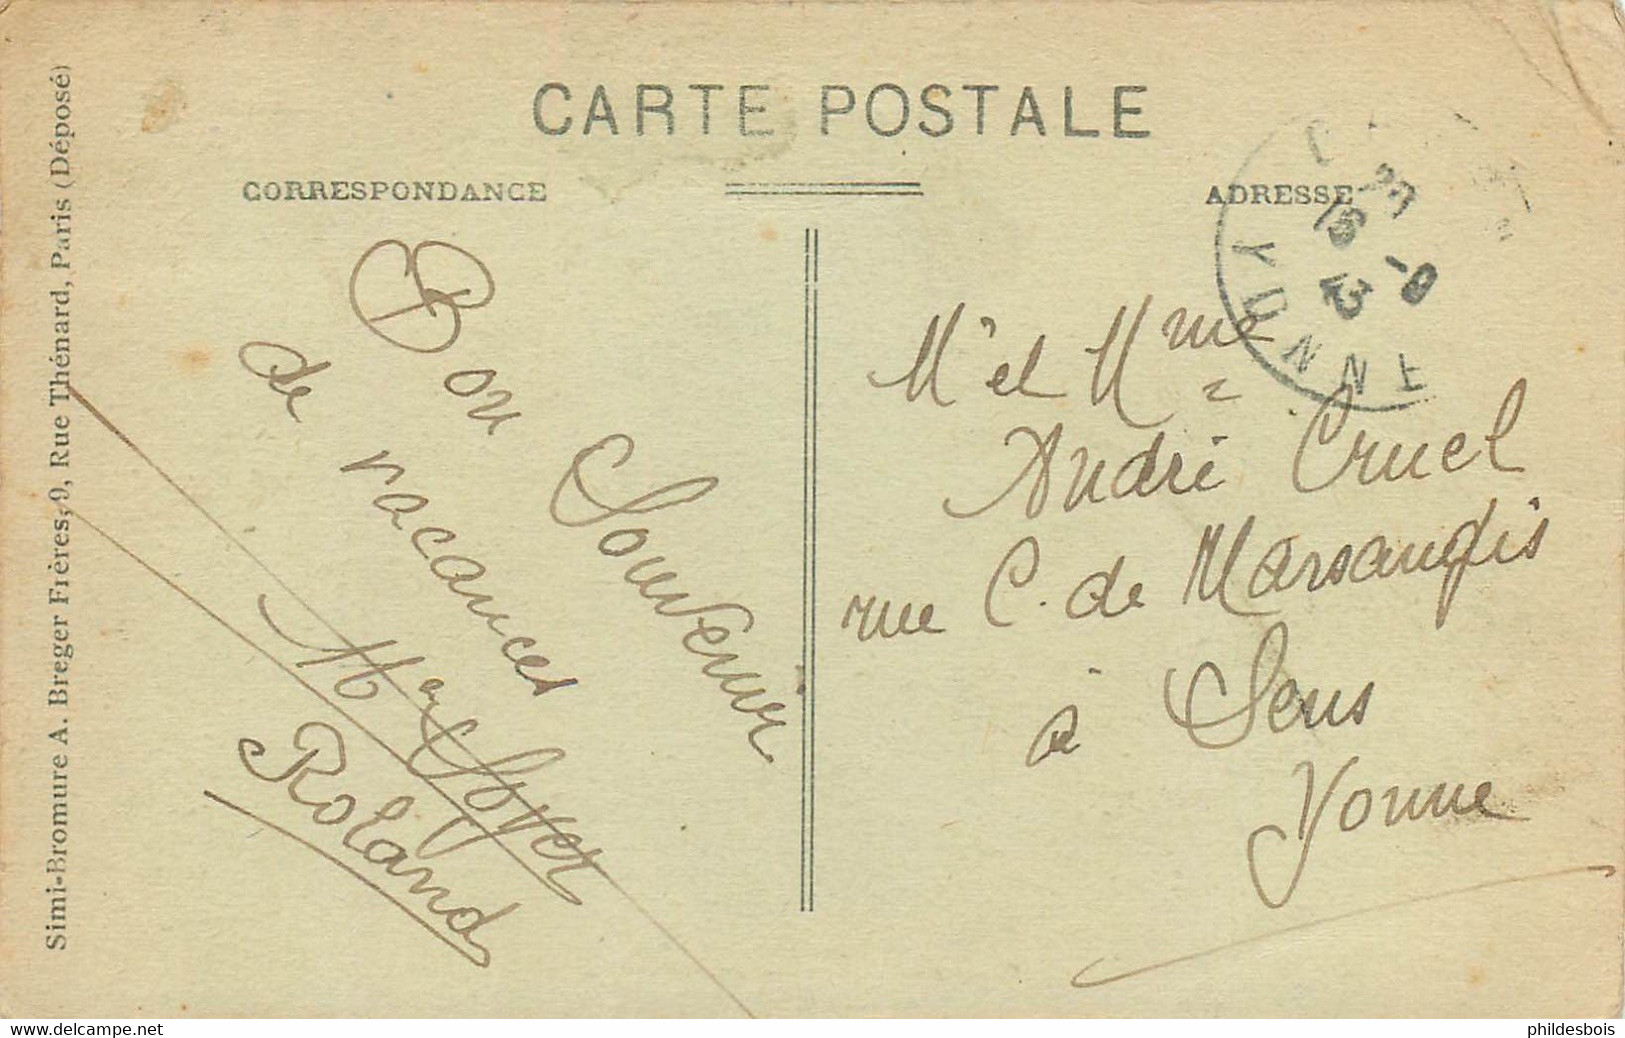 CARTE POSTALE
CORRESPONDANCE
ADRESSE
Simi-Bromure A. Breger Frères, 9, Rue Thénard, Paris (Déposé)
Bon Souvenir
de vacances
Roland
YONNE
M et Mme
André Cruel
rue C. de Marsangis
à Sens
Yonne
www.delcampe.net
phildesbois